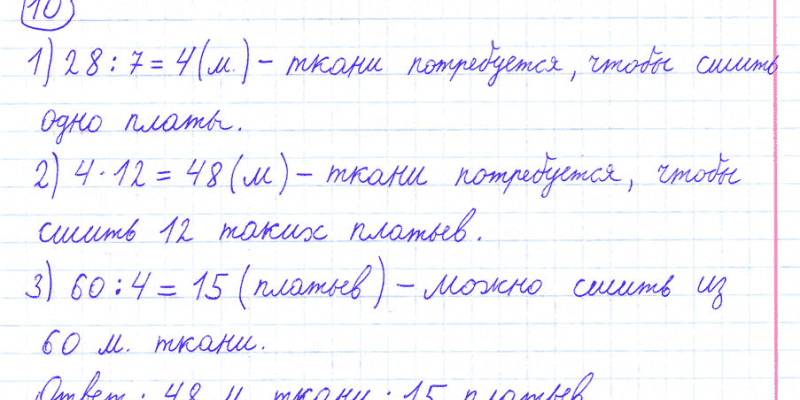 10
1) 28 : 7 = 4 (м.) – ткани потребуется, чтобы сшить
одно платы.
2) 4 · 12 = 48 (м) – ткани потребуется, чтобы
сшить 12 таких платьев.
3) 60 : 4 = 15 (платьев) – можно сшить из
60 м. ткани.
Ответ : 48 м ткани ; 15 платьев